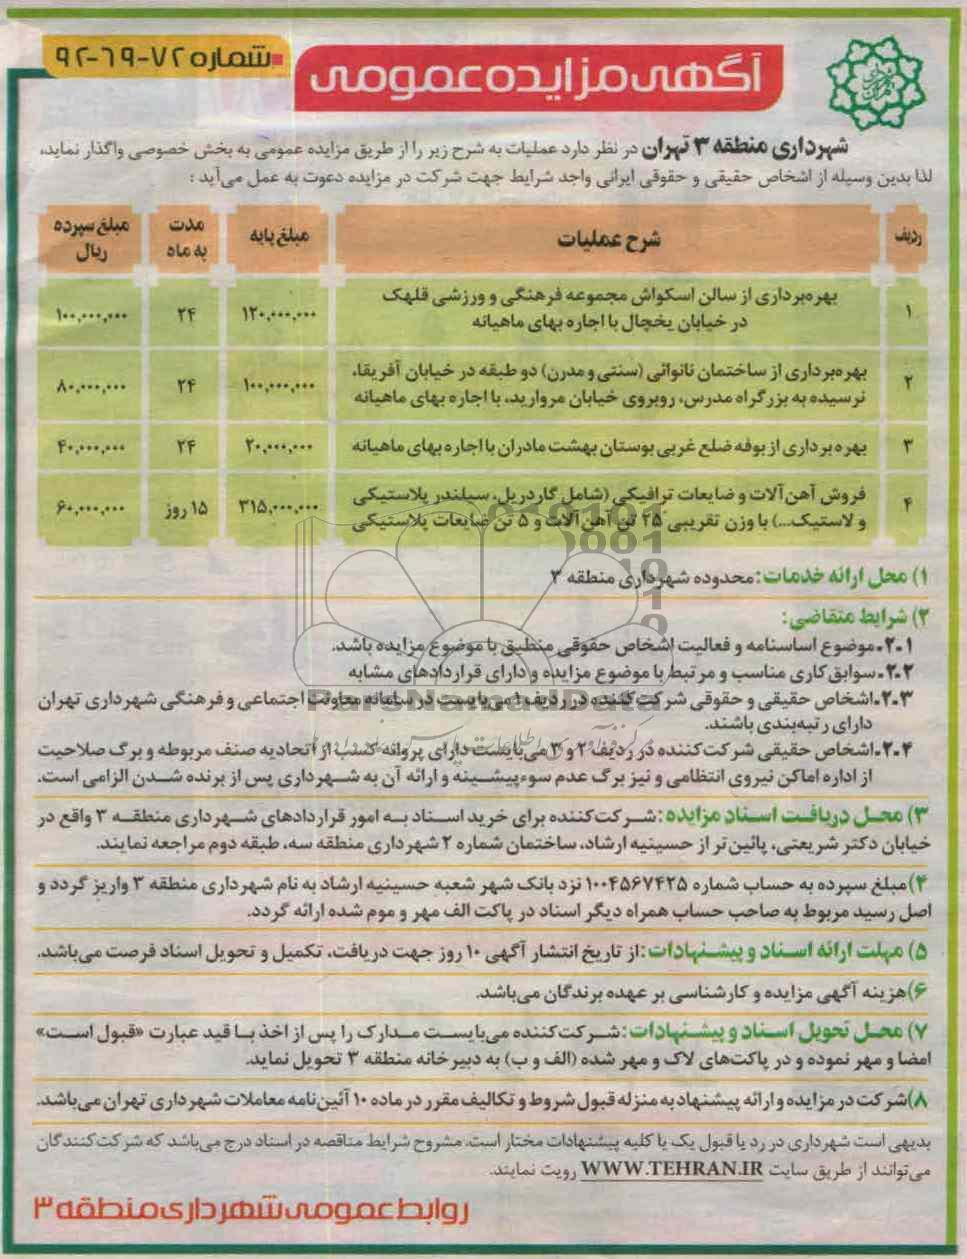 شماره ۷۲-۶۹-۹۲
آگهی مزایده عمومی
شهرداری منطقه ۳ تهران در نظر دارد عملیات به شرح زیر را از طریق مزایده عمومی به بخش خصوصی واگذار نماید،
لذا بدین وسیله از اشخاص حقیقی و حقوقی ایرانی واجد شرایط جهت شرکت در مزایده دعوت به عمل می‌آید :
ردیف شرح عملیات مبلغ پایه مدت به ماه مبلغ سپرده ریال
۱ بهره‌برداری از سالن اسکواش مجموعه فرهنگی و ورزشی قلهک ۱۲۰,۰۰۰,۰۰۰ ۲۴ ۱۰۰,۰۰۰,۰۰۰
در خیابان یخچال با اجاره بهای ماهیانه
۲ بهره‌برداری از ساختمان نانوائی (سنتی و مدرن) دو طبقه در خیابان آفریقا، ۱۰۰,۰۰۰,۰۰۰ ۲۴ ۸۰,۰۰۰,۰۰۰
نرسیده به بزرگراه مدرس، روبروی خیابان مروارید، با اجاره بهای ماهیانه
۳ بهره برداری از بوفه ضلع غربی بوستان بهشت مادران با اجاره بهای ماهیانه ۲۰,۰۰۰,۰۰۰ ۲۴ ۴۰,۰۰۰,۰۰۰
۴ فروش آهن‌آلات و ضایعات ترافیکی (شامل گاردریل، سیلندر پلاستیکی ۳۱۵,۰۰۰,۰۰۰ ۱۵ روز ۶۰,۰۰۰,۰۰۰
و لاستیک...) با وزن تقریبی ۲۵ تن آهن‌آلات و ۵ تن ضایعات پلاستیکی
۱) محل ارائه خدمات: محدوده شهرداری منطقه ۳
۲) شرایط متقاضی:
۲.۱. موضوع اساسنامه و فعالیت اشخاص حقوقی منطبق با موضوع مزایده باشد.
۲.۲. سوابق کاری مناسب و مرتبط با موضوع مزایده و دارای قراردادهای مشابه
۲.۳. اشخاص حقیقی و حقوقی شرکت‌کننده در ردیف ۱ می‌بایست در سامانه معاونت اجتماعی و فرهنگی شهرداری تهران
دارای رتبه‌بندی باشند.
۲.۴. اشخاص حقیقی شرکت‌کننده در ردیف ۲ و ۳ می‌بایست دارای پروانه کسب از اتحادیه صنف مربوطه و برگ صلاحیت
از اداره اماکن نیروی انتظامی و نیز برگ عدم سوءپیشینه و ارائه آن به شهرداری پس از برنده شدن الزامی است.
۳) محل دریافت اسناد مزایده: شرکت‌کننده برای خرید اسناد به امور قراردادهای شهرداری منطقه ۳ واقع در
خیابان دکتر شریعتی، پائین‌تر از حسینیه ارشاد، ساختمان شماره ۲ شهرداری منطقه سه، طبقه دوم مراجعه نمایند.
۴) مبلغ سپرده به حساب شماره ۱۰۰۴۵۶۷۴۲۵ نزد بانک شهر شعبه حسینیه ارشاد به نام شهرداری منطقه ۳ واریز گردد و
اصل رسید مربوط به صاحب حساب همراه دیگر اسناد در پاکت الف مهر و موم شده ارائه گردد.
۵) مهلت ارائه اسناد و پیشنهادات: از تاریخ انتشار آگهی ۱۰ روز جهت دریافت، تکمیل و تحویل اسناد فرصت می‌باشد.
۶) هزینه آگهی مزایده و کارشناسی بر عهده برندگان می‌باشد.
۷) محل تحویل اسناد و پیشنهادات: شرکت‌کننده می‌بایست مدارک را پس از اخذ با قید عبارت «قبول است»
امضا و مهر نموده و در پاکت‌های لاک و مهر شده (الف و ب) به دبیرخانه منطقه ۳ تحویل نماید.
۸) شرکت در مزایده و ارائه پیشنهاد به منزله قبول شروط و تکالیف مقرر در ماده ۱۰ آئین‌نامه معاملات شهرداری تهران می‌باشد.
بدیهی است شهرداری در رد یا قبول یک یا کلیه پیشنهادات مختار است. مشروح شرایط مناقصه در اسناد درج می‌باشد که شرکت‌کنندگان
می‌توانند از طریق سایت WWW.TEHRAN.IR رویت نمایند.
روابط عمومی شهرداری منطقه ۳
ParsNamadData